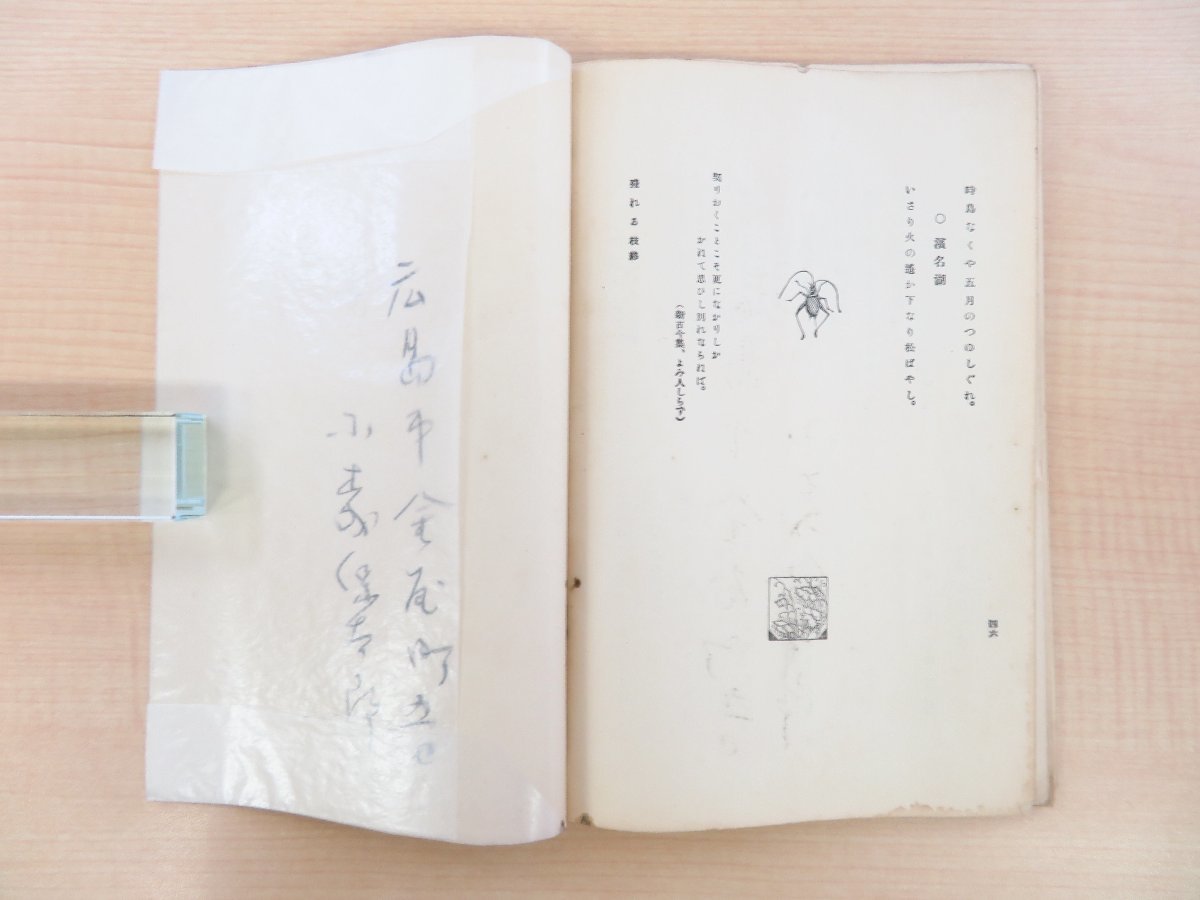 時鳥なくや五月のつゆしぐれ。
○濱名湖
いさり火の遥か下なり松ばやし。
契りおくことこそ更になかりしか
かねて思ひし別れならねば。
(新古今集、よみ人しらず)
残れる枝
四六
広島市金屋町五
小 保吉郎